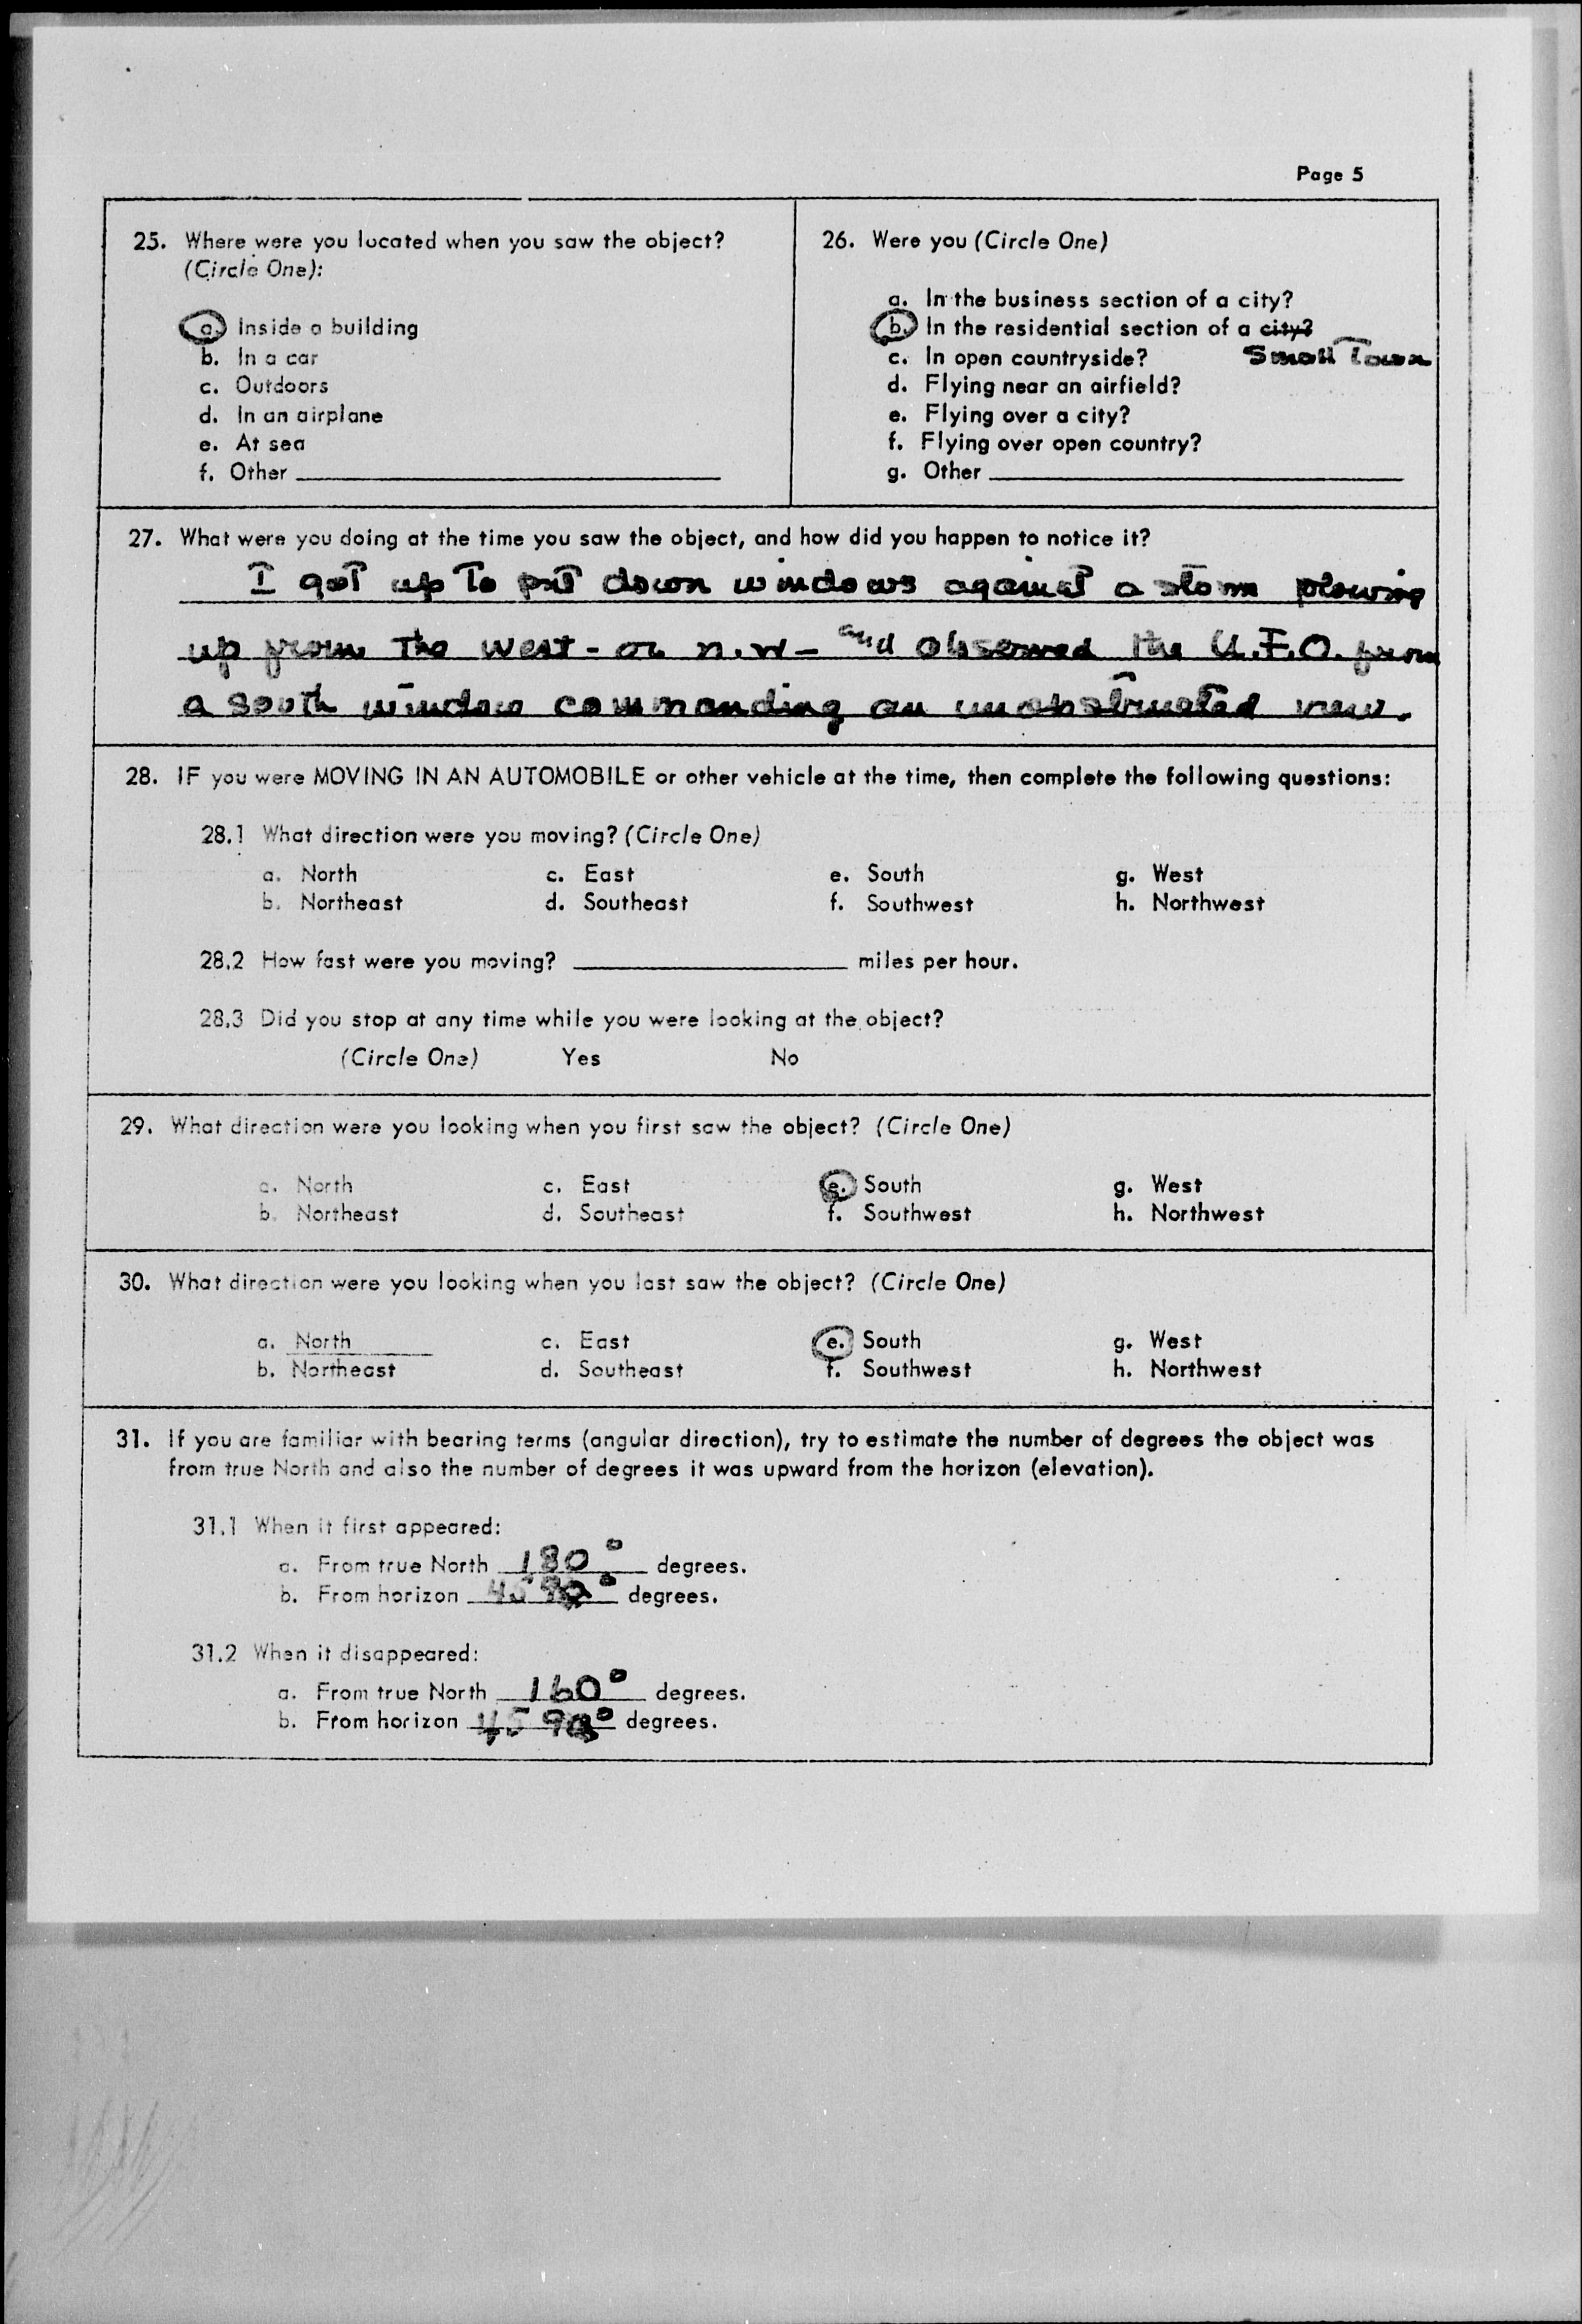 Page 5
25. Where were you located when you saw the object?
(Circle One):
a. Inside a building
b. In a car
c. Outdoors
d. In an airplane
e. At sea
f. Other
26. Were you (Circle One)
a. In the business section of a city?
b. In the residential section of a city?
Small Town
c. In open countryside?
d. Flying near an airfield?
e. Flying over a city?
f. Flying over open country?
g. Other
27. What were you doing at the time you saw the object, and how did you happen to notice it?
I got up to put down windows against a storm
up from the west - or n.w - and observed the U.F.O. from
a south window commanding an unobstructed view.
28. IF you were MOVING IN AN AUTOMOBILE or other vehicle at the time, then complete the following questions:
28.1 What direction were you moving? (Circle One)
a. North c. East e. South g. West
b. Northeast d. Southeast f. Southwest h. Northwest
28.2 How fast were you moving? miles per hour.
28.3 Did you stop at any time while you were looking at the object?
(Circle One) Yes No
29. What direction were you looking when you first saw the object? (Circle One)
a. North c. East e. South g. West
b. Northeast d. Southeast f. Southwest h. Northwest
30. What direction were you looking when you last saw the object? (Circle One)
a. North c. East e. South g. West
b. Northeast d. Southeast f. Southwest h. Northwest
31. If you are familiar with bearing terms (angular direction), try to estimate the number of degrees the object was
from true North and also the number of degrees it was upward from the horizon (elevation).
31.1 When it first appeared:
a. From true North 180° degrees.
b. From horizon 45 degrees.
31.2 When it disappeared:
a. From true North 160° degrees.
b. From horizon 45 degrees.